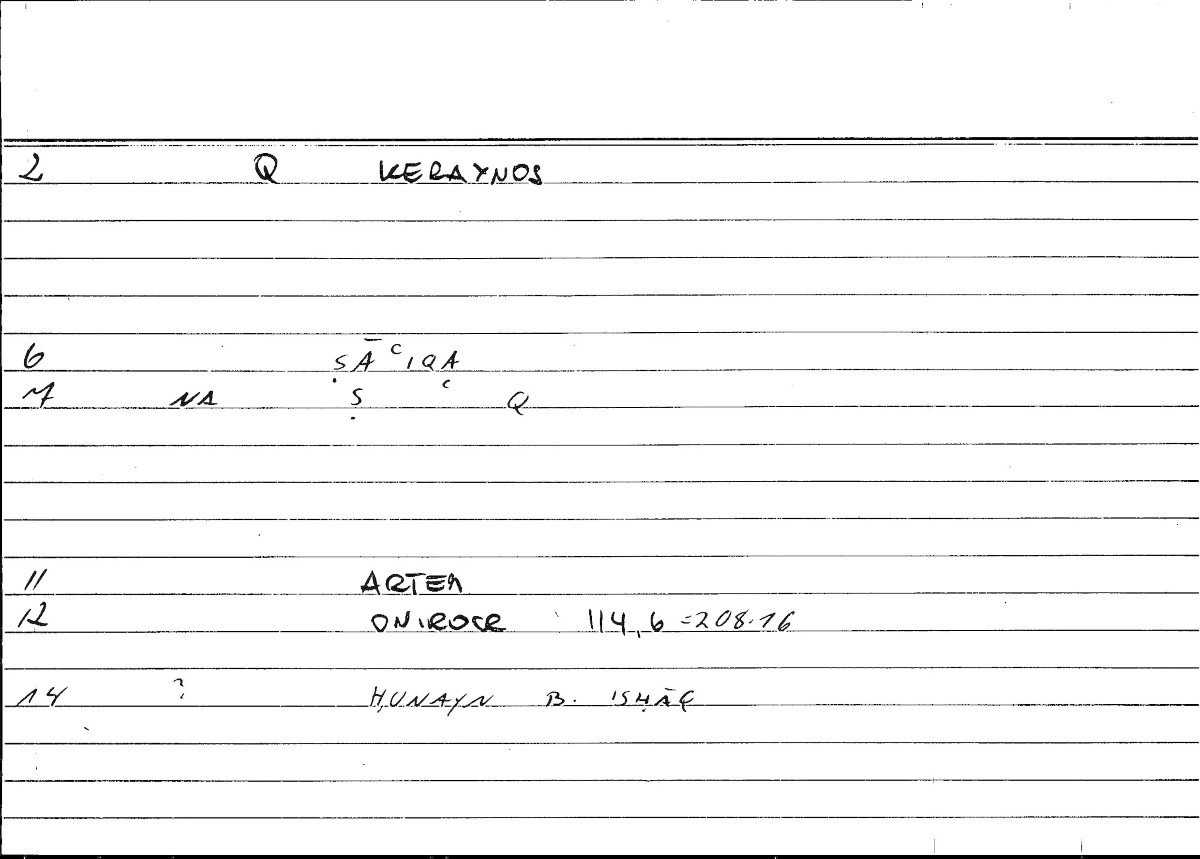 2 Q KERAYNOS
6 ṢĀʿIQA
7 NA Ṣ ʿ Q
11 ARTEM
12 ONIROCR 114,6 =208.16
14 ? ḤUNAYN B. ISḤĀQ